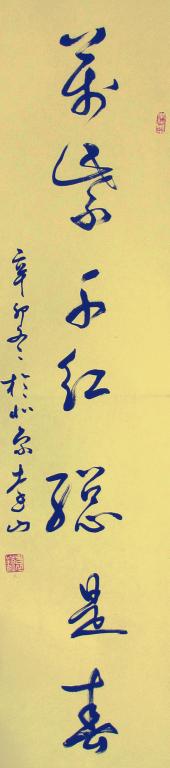 萬紫千紅總是春
辛卯冬於北京老山